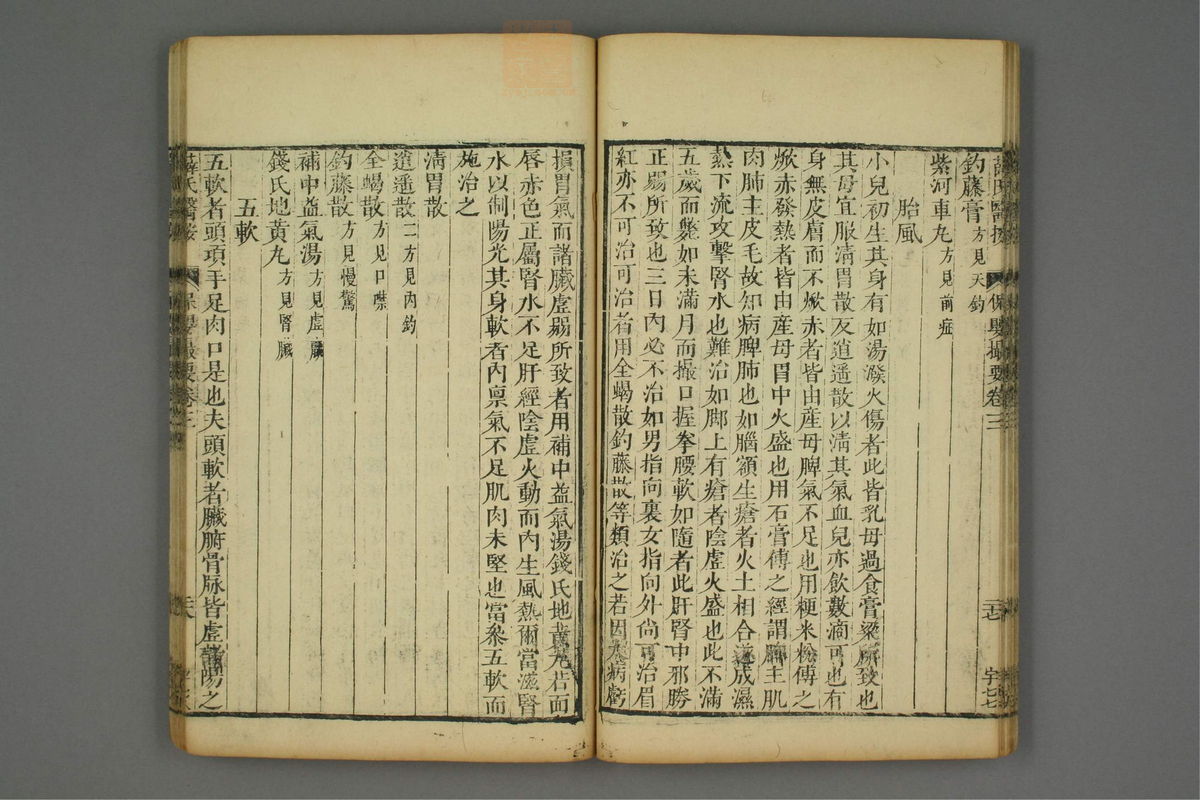 薛氏醫按
保嬰撮要卷三
二十七
宇七七
釣藤膏方見天釣
紫河車丸方見前症
胎風
小兒初生其身有如湯潑火傷者此皆乳母過食膏粱所致也
其母宜服清胃散及逍遙散以清其氣血兒亦飲數滴可也有
身無皮膚而不焮赤者皆由產母脾氣不足也用粳米粉傅之
焮赤發熱者皆由產母胃中火盛也用石膏傅之經謂脾主肌
肉肺主皮毛故知病脾肺也如腦額生瘡者火土相合遂成濕
熱下流攻擊腎水也難治如脚上有瘡者陰虛火盛也此不滿
五歲而斃如未滿月而撮口握拳腰軟如隨者此肝腎中邪勝
正弱所致也三日內必不治如男指向裏女指向外尚可治眉
紅亦不可治可治者用全蝎散釣藤散等類治之若因大病虧
損胃氣而諸臟虛弱所致者用補中益氣湯錢氏地黃丸若面
唇赤色正屬腎水不足肝經陰虛火動而內生風熱爾當滋腎
水以制陽光其身軟者內稟氣不足肌肉未堅也當參五軟而
施治之
清胃散
逍遙散二方見內釣
全蝎散方見口噤
釣藤散方見慢驚
補中益氣湯方見虛臟
錢氏地黃丸方見腎臟
五軟
五軟者頭項手足肉口是也夫頭軟者臟腑骨脉皆虛諸陽之
薛氏醫按
保嬰撮要卷三